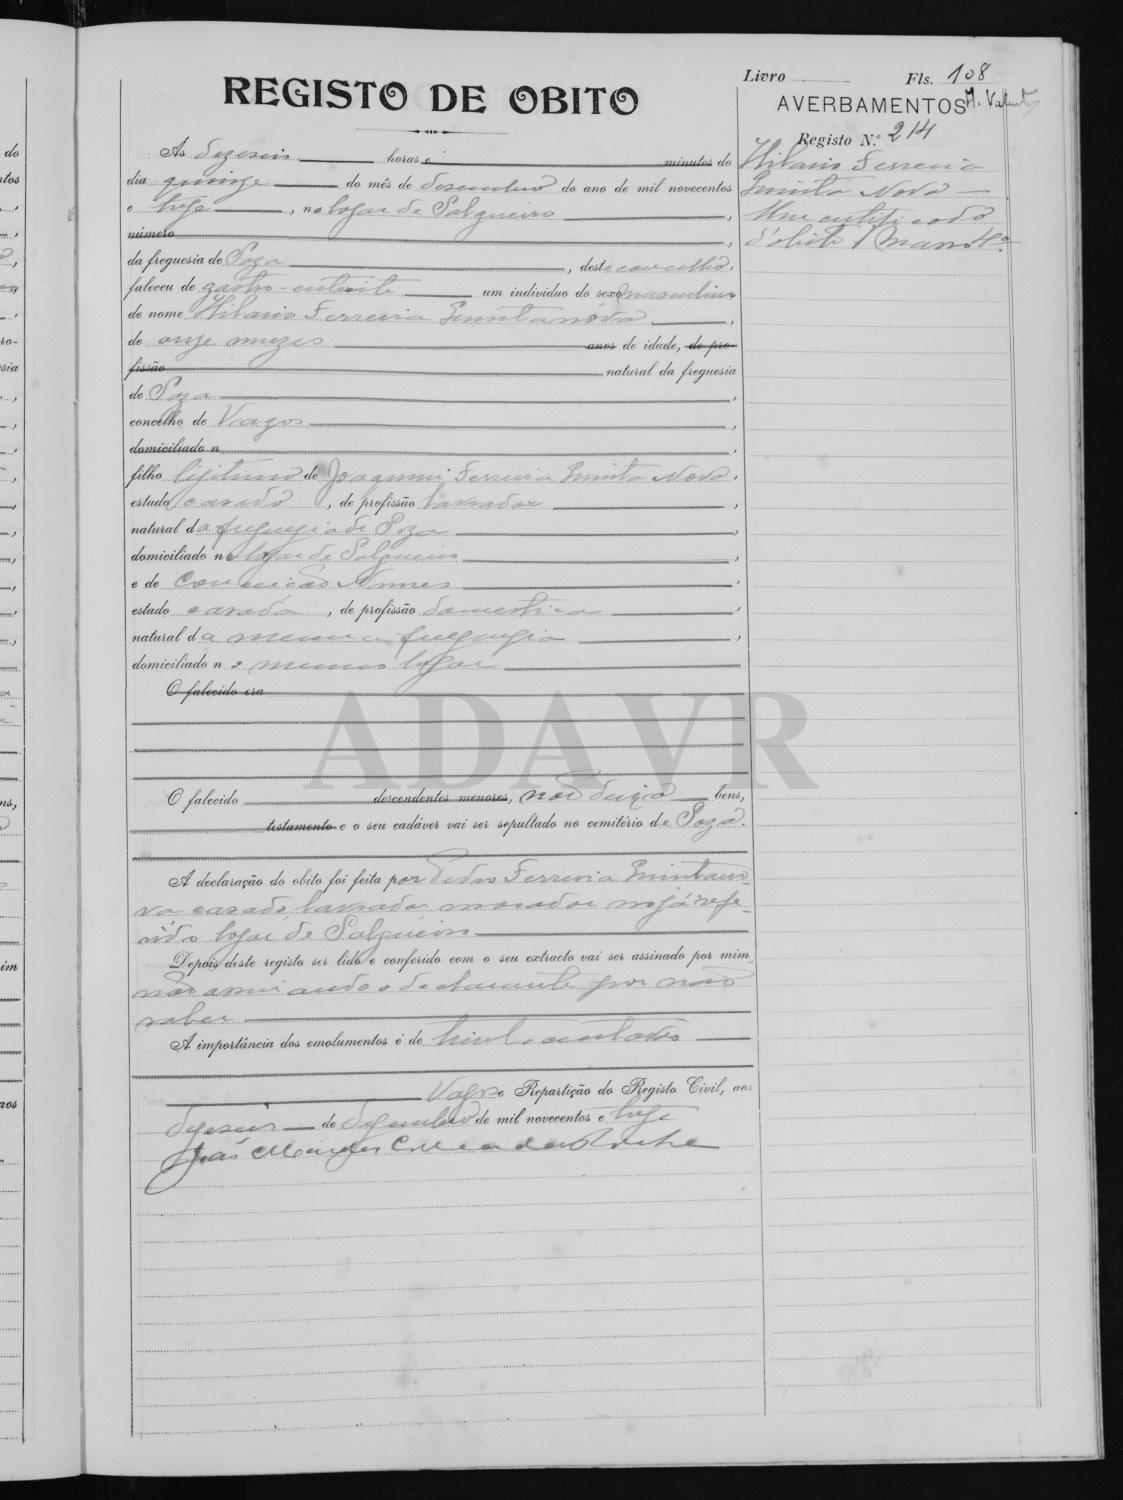 Livro Fls. 108
REGISTO DE OBITO
AVERBAMENTOS
Registo N.º 214
Hilario Ferreira
Quinta Nova
d'obito
As dezeseis horas e minutos do
dia quinze do mês de dezembro do ano de mil novecentos
e treze, no logar de Salgueiro,
número,
da freguesia de Soza, deste concelho,
faleceu de gastro-enterite um individuo do sexo masculino
de nome Hilario Ferreira Quintanova,
de onze mezes anos de idade, de pro-
fissão natural da freguesia
de Soza,
concelho de Vagos,
domiciliado n,
filho legitimo de Joaquim Ferreira Quinta Nova,
estado casado, de profissão lavrador,
natural da freguezia de Soza,
domiciliado no logar de Salgueiro,
e de Conceição Nunes,
estado casada, de profissão domestica,
natural da mesma freguezia,
domiciliado no mesmo logar
O falecido era
ADAVR
O falecido descendentes menores, não deixa bens,
testamento e o seu cadáver vai ser sepultado no cemitério de Soza.
A declaração do obito foi feita por Pedro Ferreira Quintano-
va casado, lavrador morador no já refe-
rido logar de Salgueiro
Depois deste registo ser lido e conferido com o seu extracto vai ser assinado por mim,
não assinando o declarante por não
saber
A importância dos emolumentos é de trinta centavos
Vagos e Repartição do Registo Civil, aos
dezeseis de dezembro de mil novecentos e treze